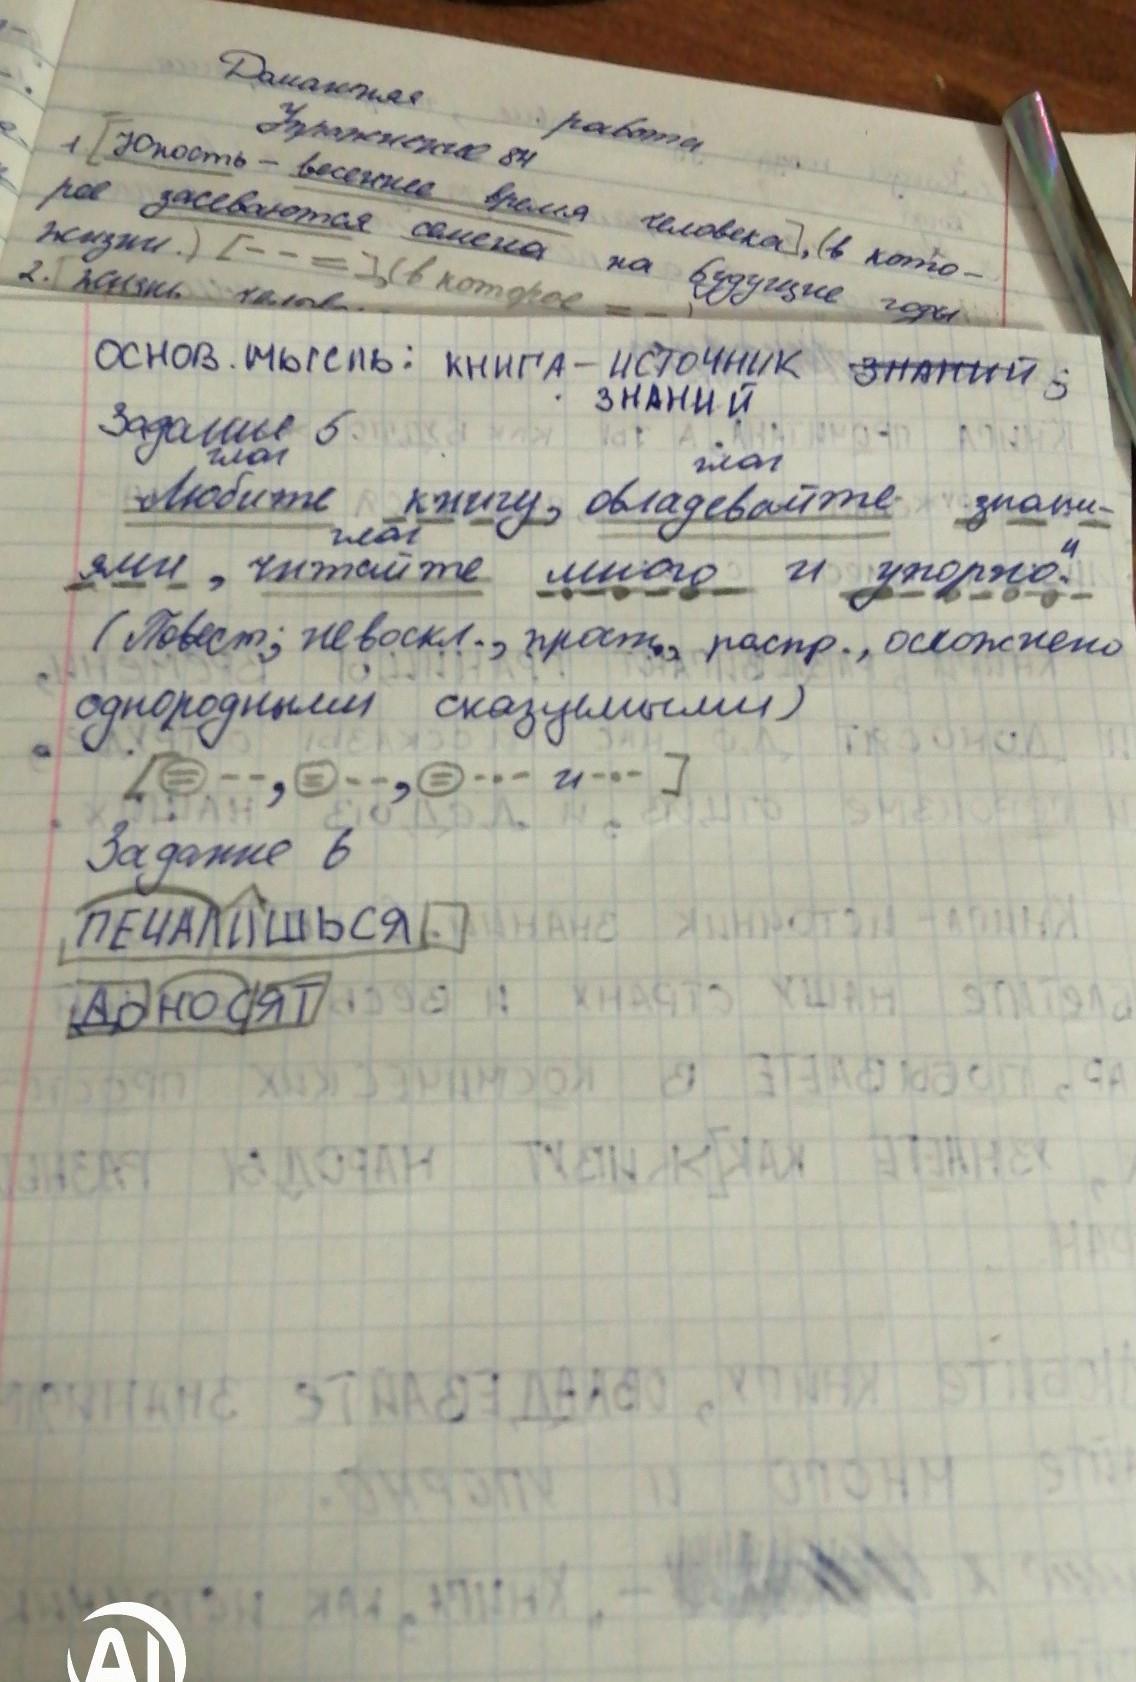 Домашняя работа
Упражнение 84
1 [Юность – весеннее время человека], (в кото-
рое засеваются семена на будущие годы
жизни.) [-- =], (в которое = -)
2. [Жизнь челов...
ОСНОВ. МЫСЛЬ: КНИГА – ИСТОЧНИК ЗНАНИЙ
ЗНАНИЙ
Задание 5
глаг глаг
Любите книгу, овладевайте знани-
глаг
ями, читайте много и упорно."
(Повест; невоскл., прост., распр., осложнено
однородными сказуемыми)
[= --, = --, = -.- и -.-]
Задание 6
ПЕЧАЛИШЬСЯ
ДОНОСЯТ
AI